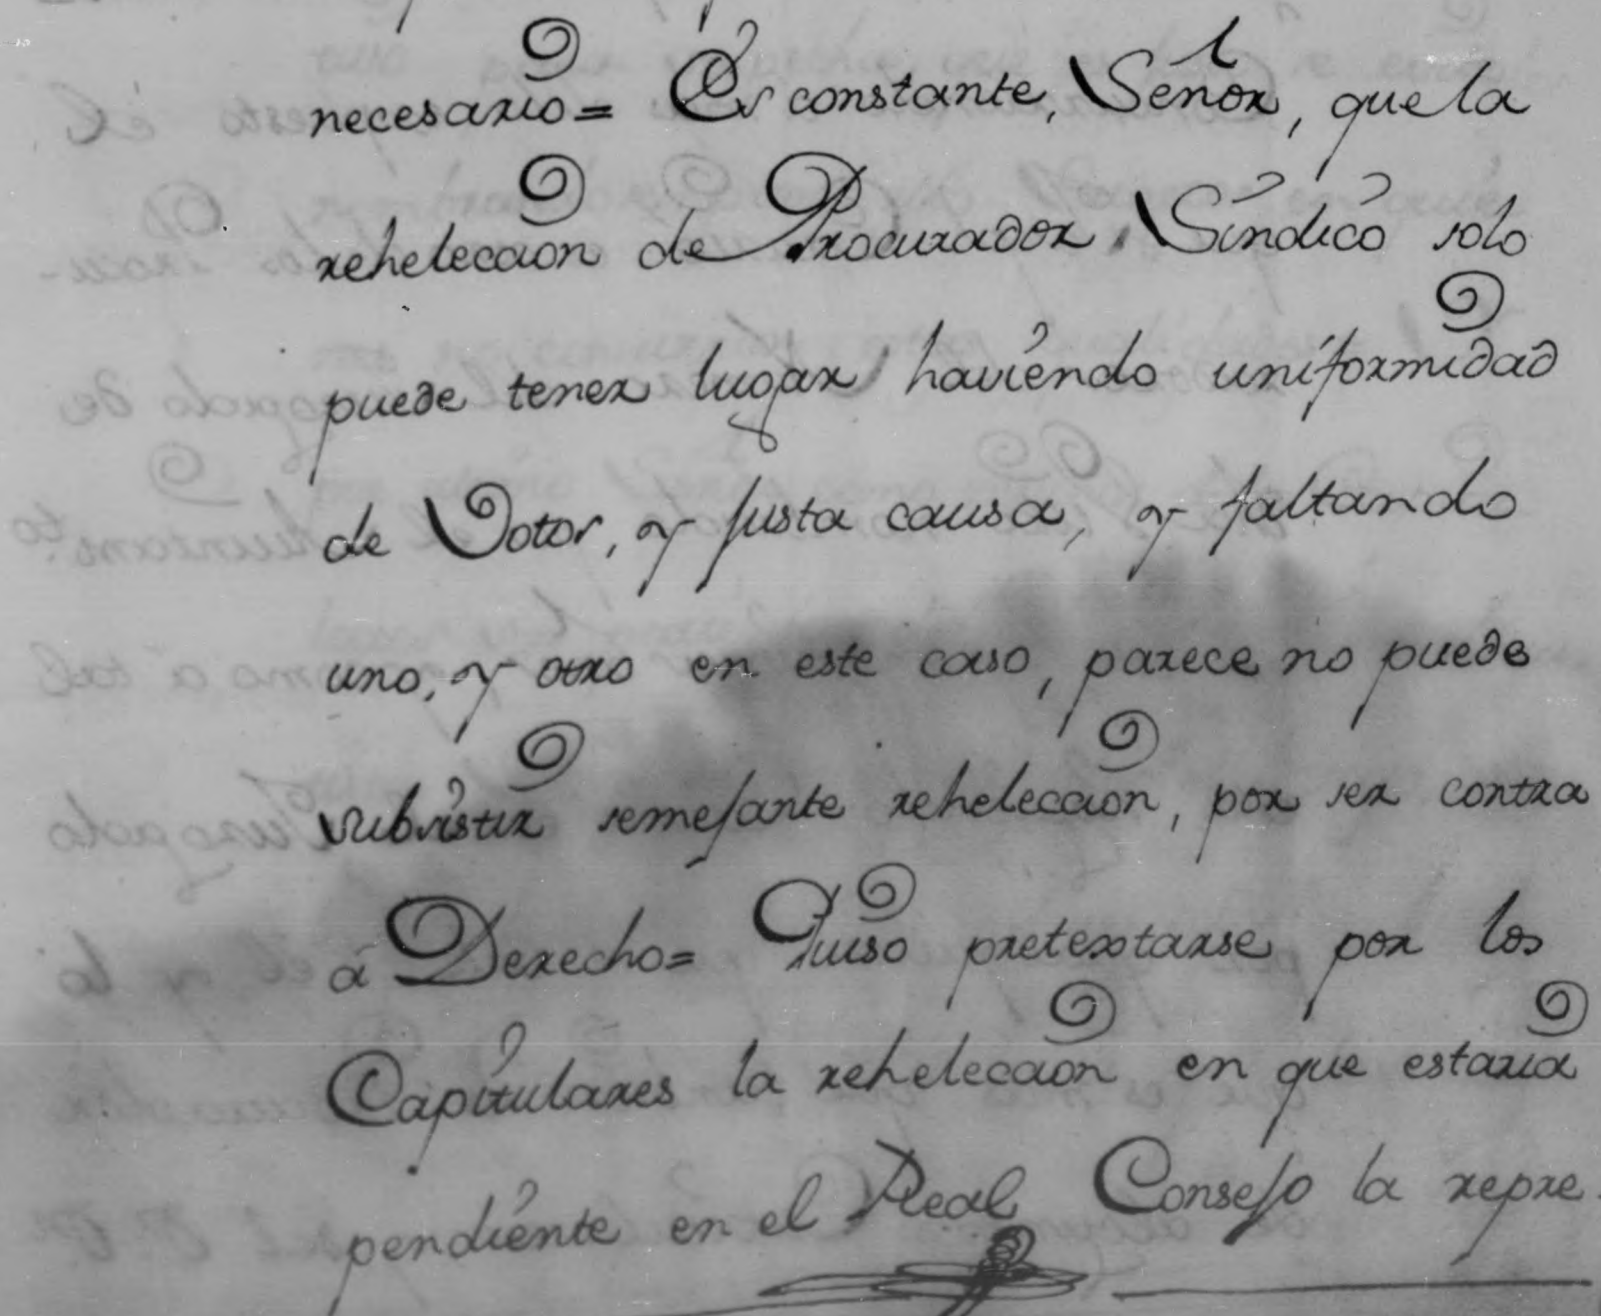 necesario = Es constante, Señor, que la
reheleccion de Procurador Sindico solo
puede tener lugar haviendo uniformidad
de Votos, y justa causa, y faltando
uno, y otro en este caso, parece no puede
subsistir semejante reheleccion, por ser contra
á Derecho = Quiso pretextarse por los
Capitulares la reheleccion en que estaria
pendiente en el Real Consejo la repre